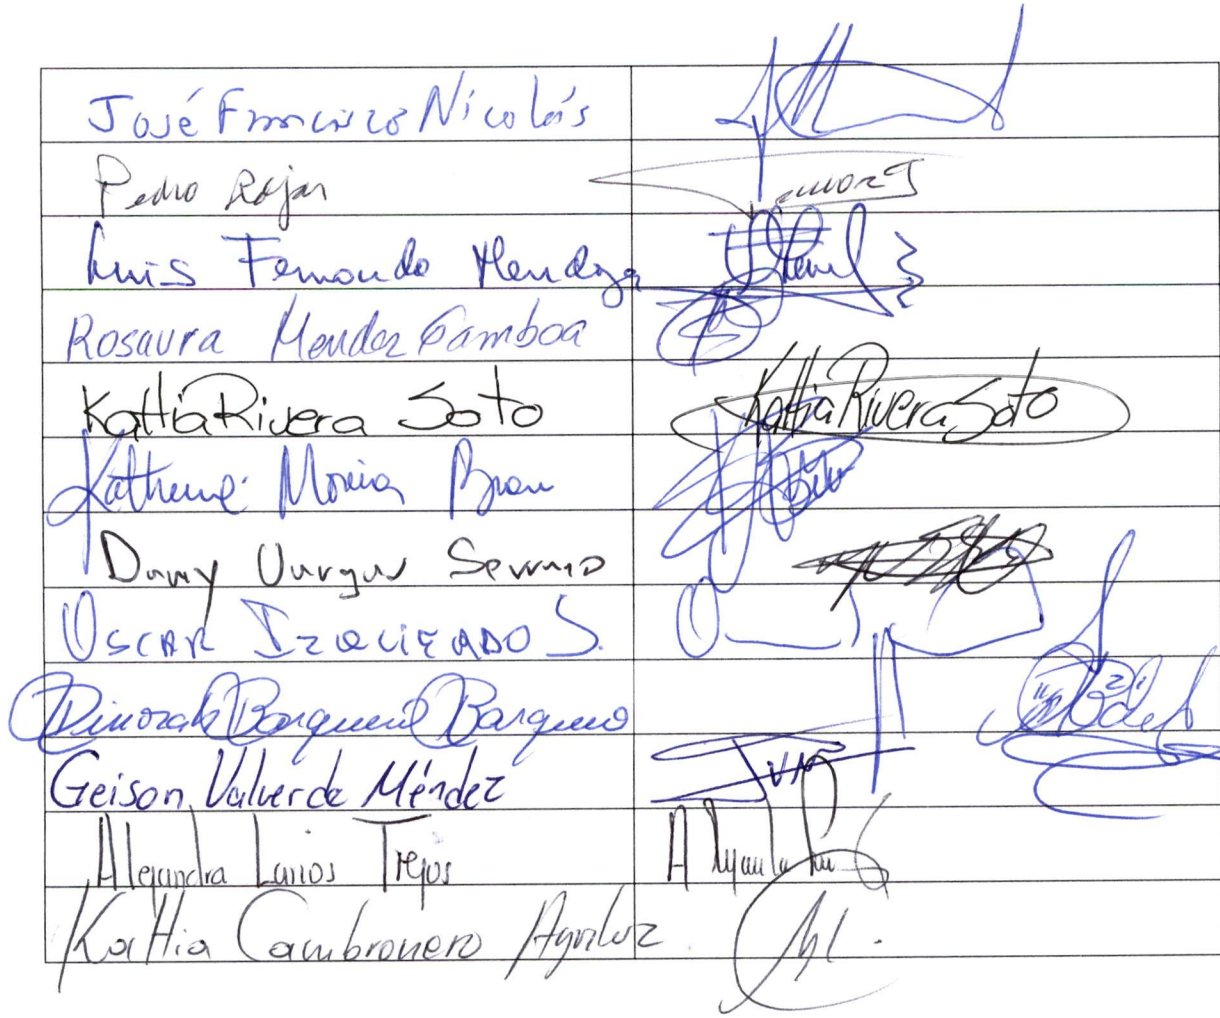 José Francisco Nicolás
Pedro Rojas
Luis Fernando Mendoza
Rosaura Mendez Gamboa
Kattia Rivera Soto Kattia Rivera Soto
Katherine Moreira Bran
Dany Vargas Serrano
Oscar Izquierdo S.
Dinorah Barquero Barquero
Geison Valverde Méndez JVM
Alejandra Larios Trejos
Kattia Cambronero Aguiluz